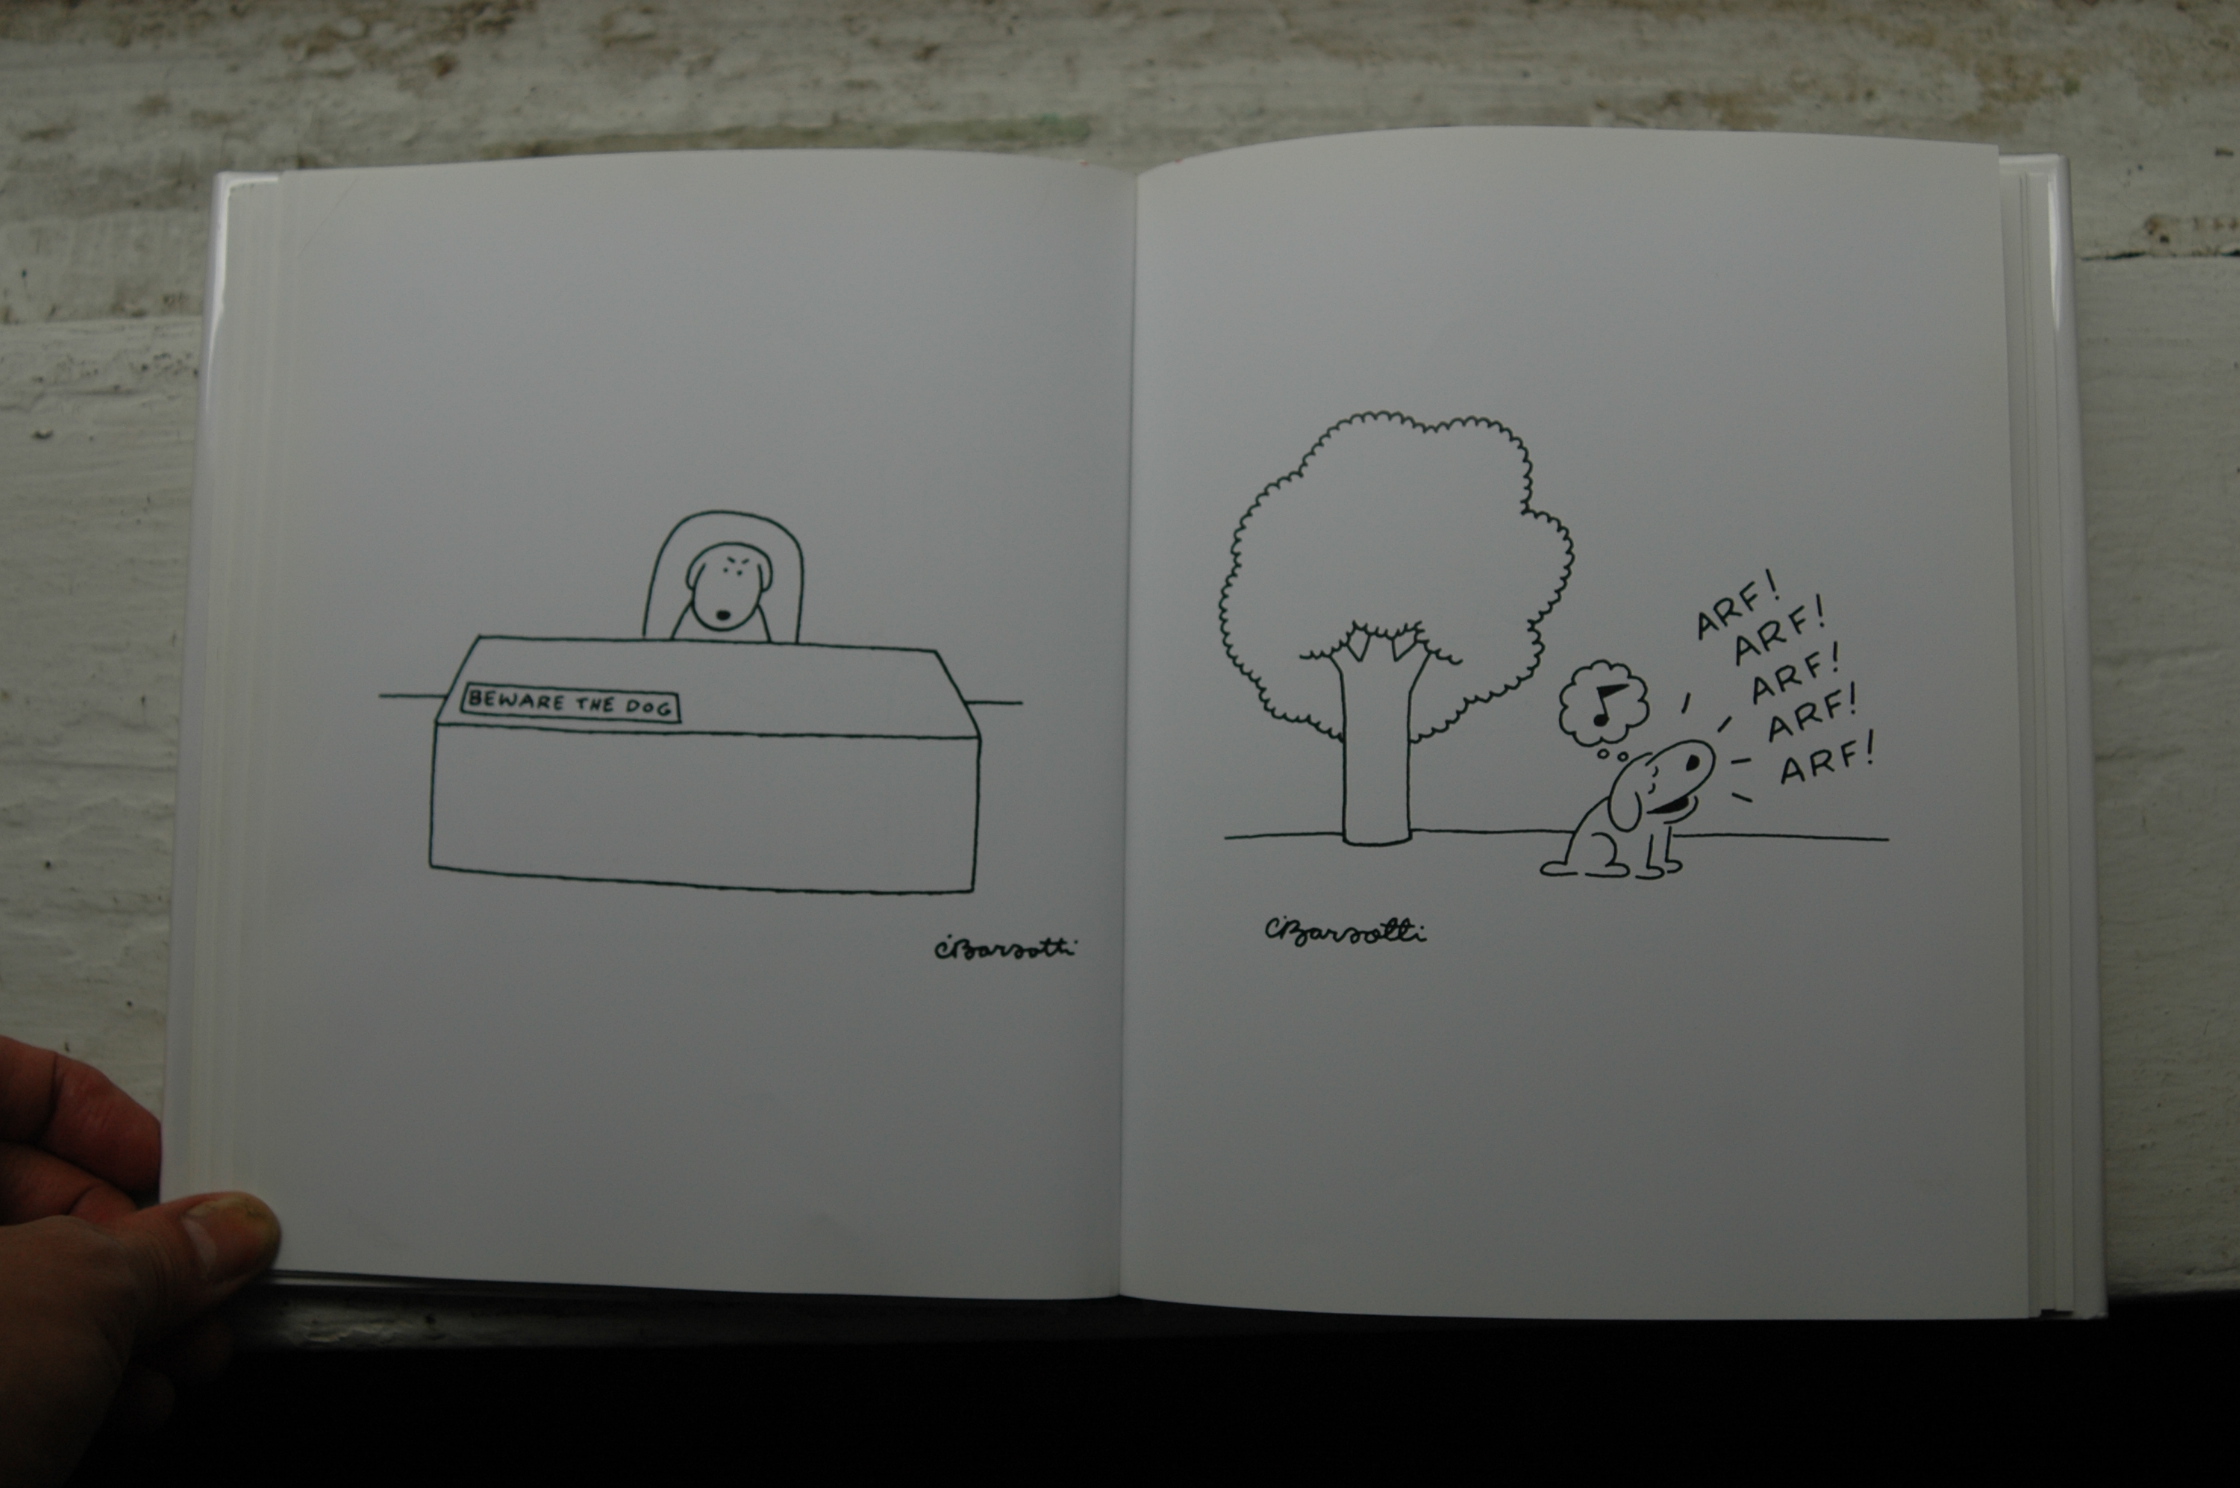 BEWARE THE DOG
CBarsotti
ARF!
ARF!
ARF!
ARF!
ARF!
CBarsotti